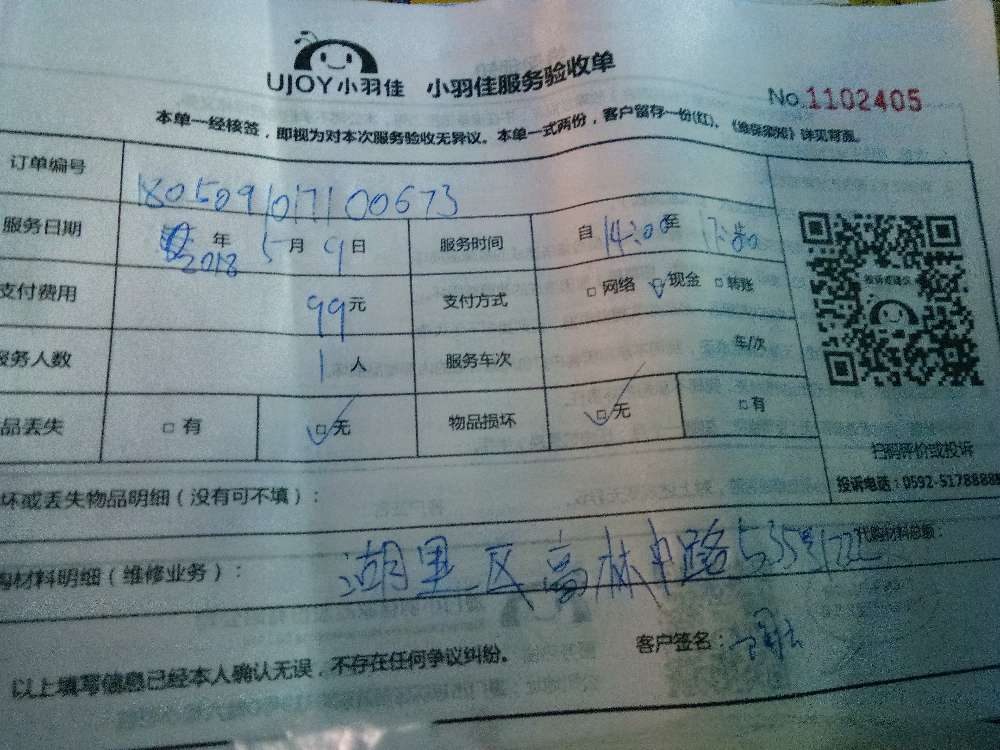 UJOY小羽佳 小羽佳服务验收单
No.1102405
本单一经核签，即视为对本次服务验收无异议。本单一式两份，客户留存一份(红)。《维保须知》详见背面。
订单编号 1805091017100673
服务日期 2018 年 5 月 9 日 服务时间 自 14:00 至 17:00
支付费用 99 元 支付方式 □ 网络 □ 现金 □ 转账
服务人数 1 人 服务车次 车/次
品丢失 □ 有 □ 无 物品损坏 □ 无 □ 有
投诉或建议
扫码评价或投诉
投诉电话：0592-5178888
坏或丢失物品明细（没有可不填）：
购材料明细（维修业务）： 湖里区高林中路535号 代购材料总额：
以上填写信息已经本人确认无误，不存在任何争议纠纷。 客户签名：